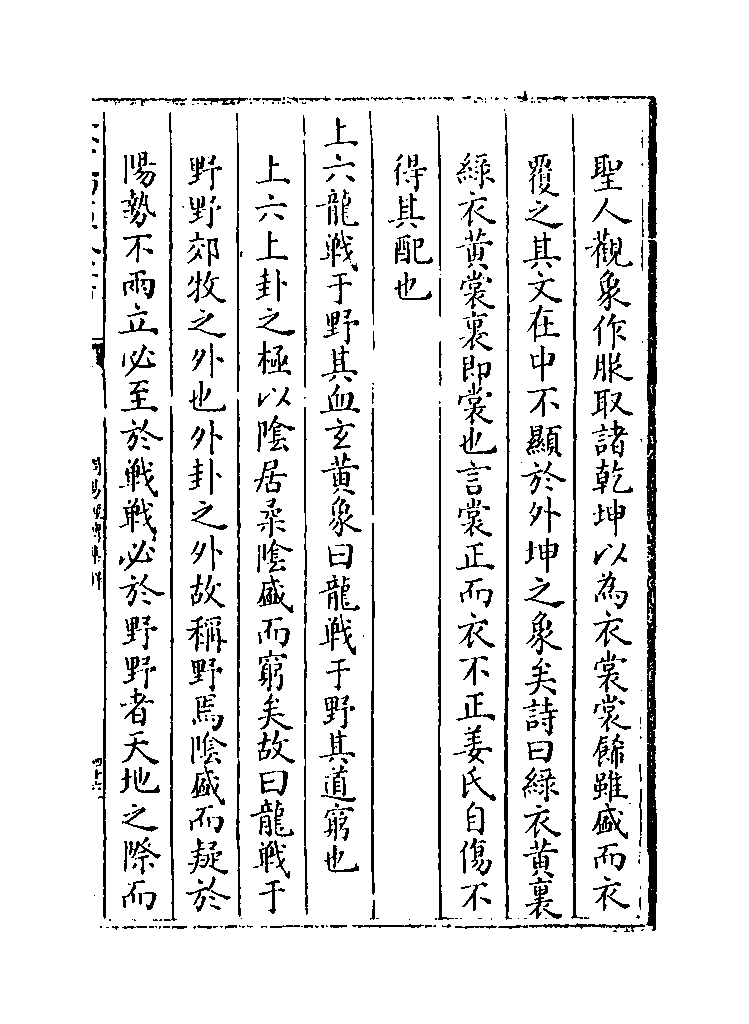 聖人觀象作服取諸乾坤以為衣裳裳餙雖盛而衣
覆之其文在中不顯於外坤之象矣詩曰緑衣黄裏
緑衣黄裳裏即裳也言裳正而衣不正姜氏自傷不
得其配也
上六龍戰于野其血玄黄象曰龍戰于野其道窮也
上六上卦之極以隂居柔隂盛而窮矣故曰龍戰于
野野郊牧之外也外卦之外故稱野焉隂盛而疑於
陽勢不兩立必至於戰戰必於野野者天地之際而
周易經傳集解